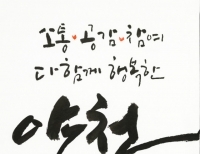 소통·공감·참여
다함께 행복한
양천